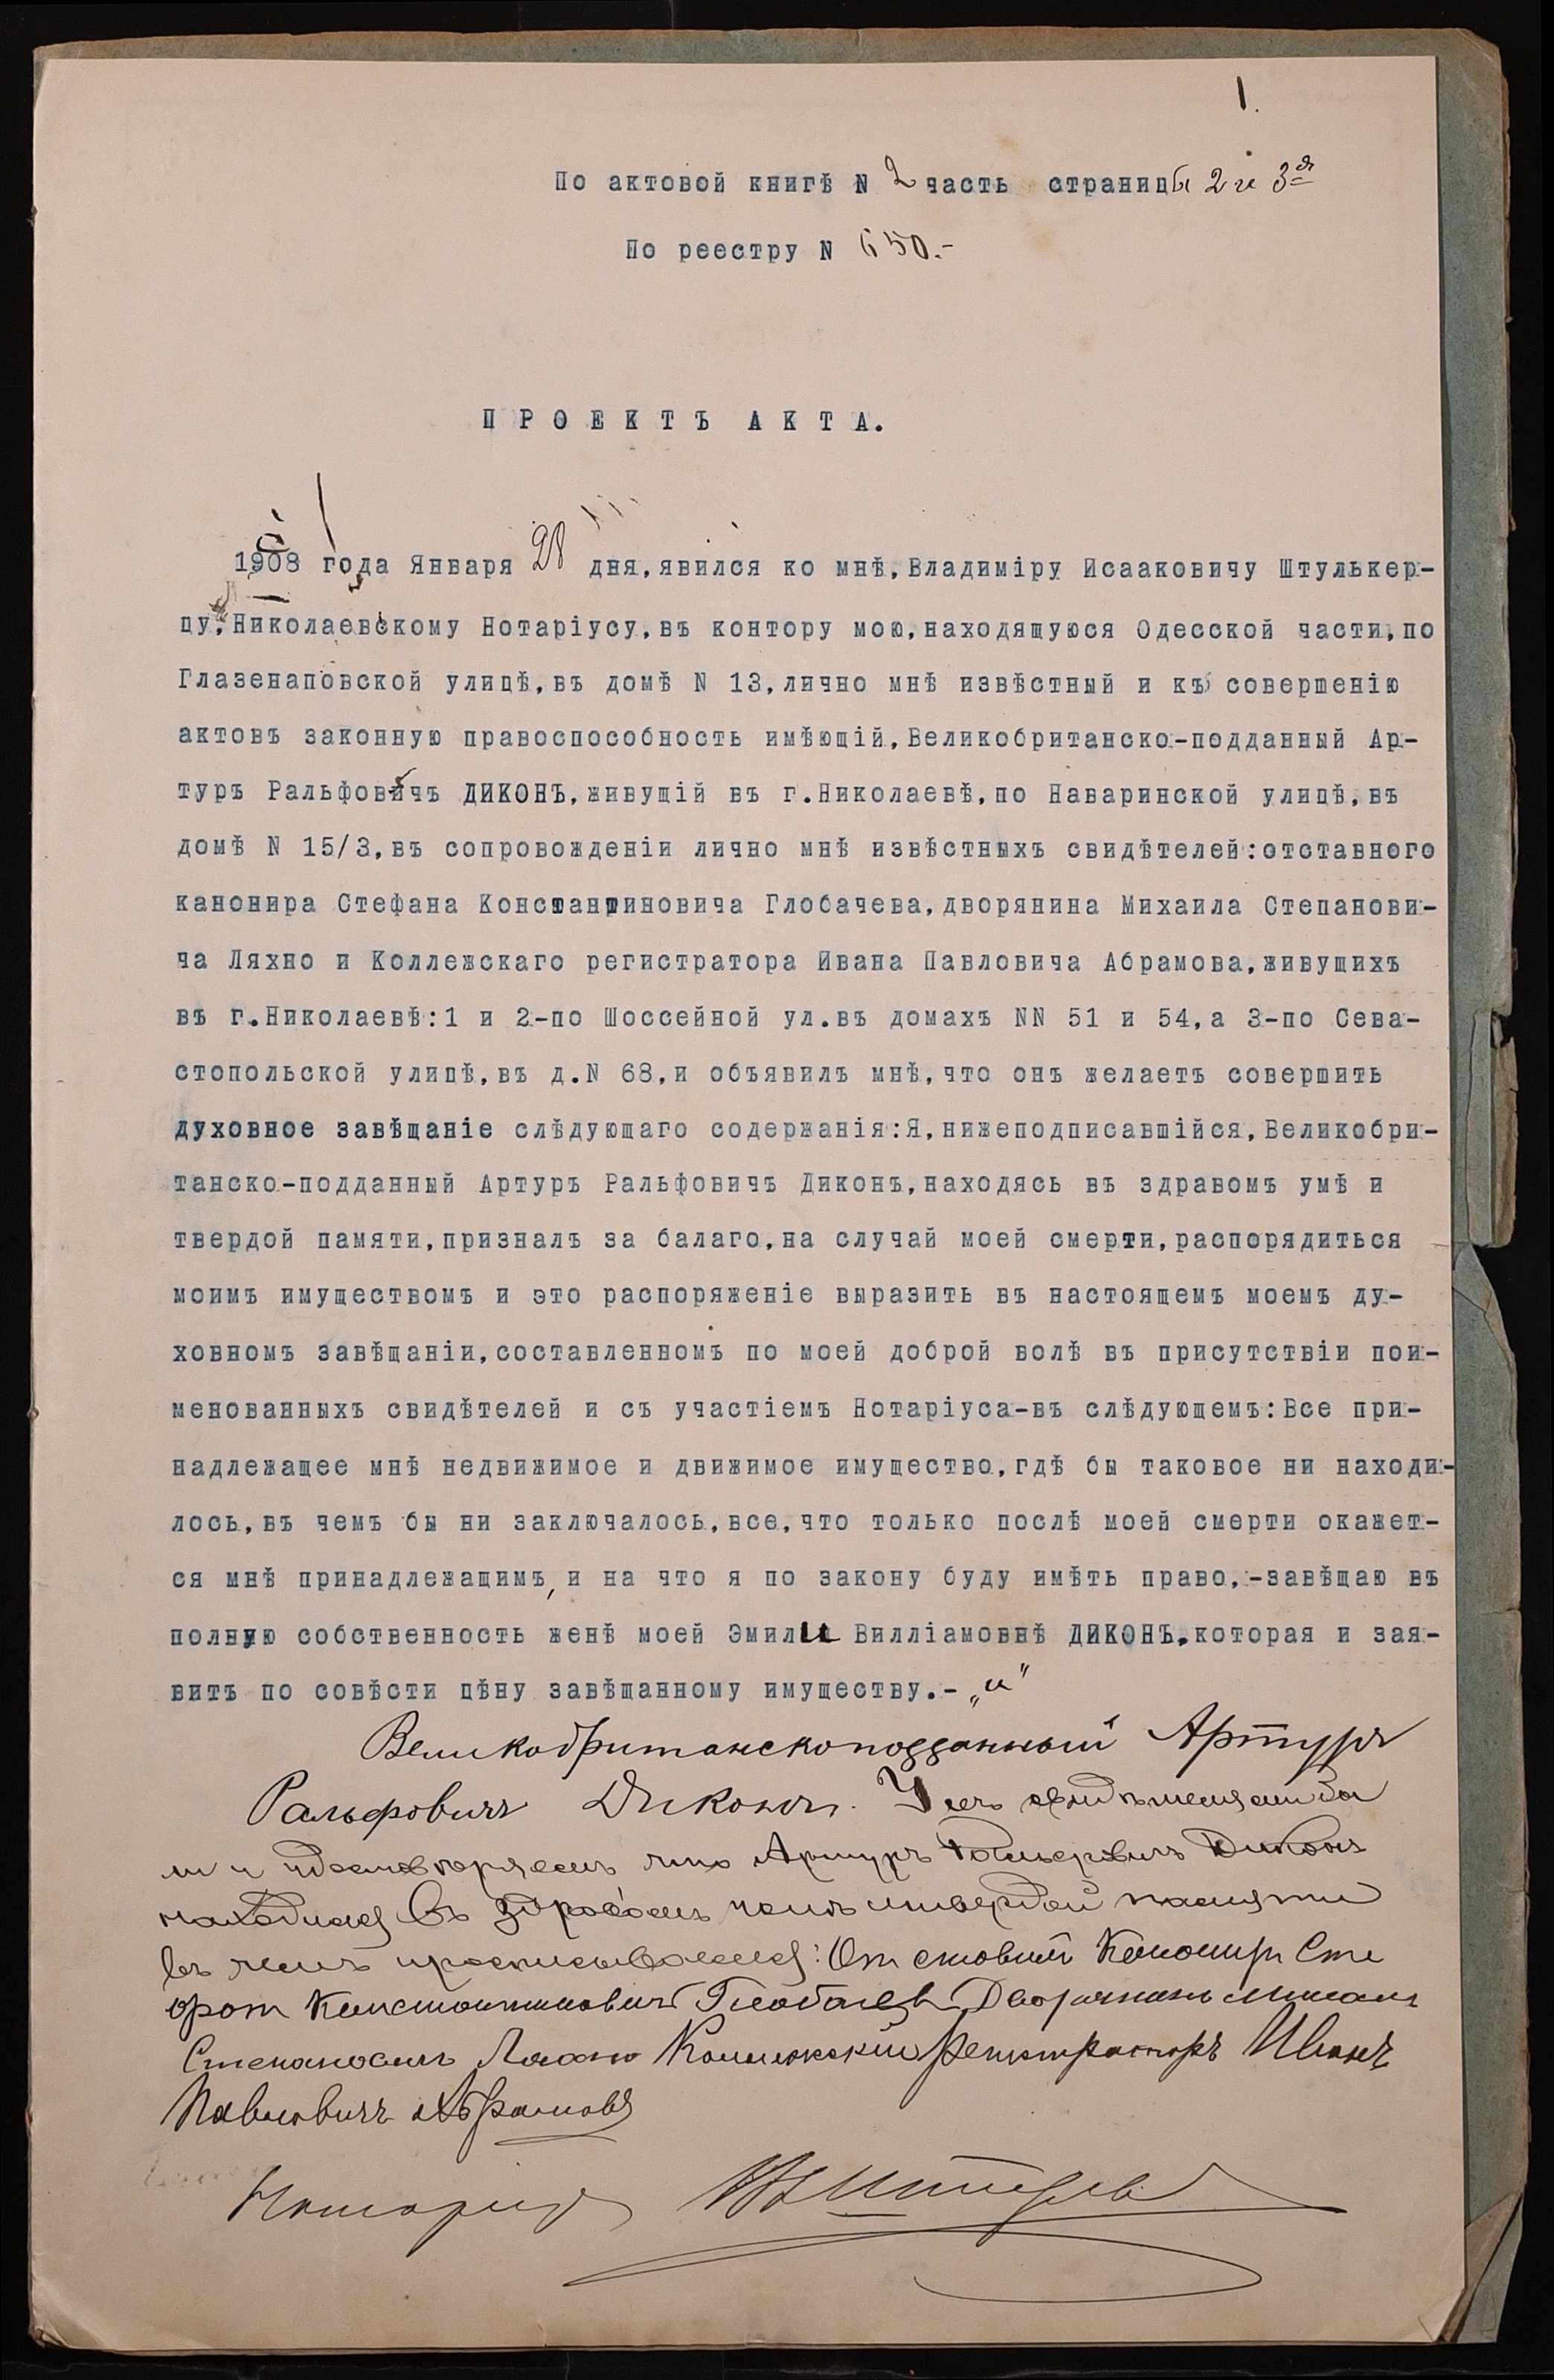 1.
По актовой книгѣ N 2 часть страницы 2 и 3я
По реестру N 650.-
ПРОЕКТЪ АКТА.
1908 года Января 28 дня, явился ко мнѣ, Владиміру Исааковичу Штулькер-
цу, Николаевскому Нотаріусу, въ контору мою, находящуюся Одесской части, по
Глазенаповской улицѣ, въ домѣ N 13, лично мнѣ извѣстный и къ совершенію
актовъ законную правоспособность имѣющій, Великобританско-подданный Ар-
туръ Ральфовичъ ДИКОНЪ, живущій въ г.Николаевѣ, по Наваринской улицѣ, въ
домѣ N 15/3, въ сопровожденіи лично мнѣ извѣстныхъ свидѣтелей: отставного
канонира Стефана Константиновича Глобачева, дворянина Михаила Степанови-
ча Ляхно и Коллежскаго регистратора Ивана Павловича Абрамова, живущихъ
въ г.Николаевѣ: 1 и 2-по Шоссейной ул. въ домахъ NN 51 и 54, а 3-по Сева-
стопольской улицѣ, въ д.N 68, и объявилъ мнѣ, что онъ желаетъ совершить
духовное завѣщаніе слѣдующаго содержанія: Я, нижеподписавшійся, Великобри-
танско-подданный Артуръ Ральфовичъ Диконъ, находясь въ здравомъ умѣ и
твердой памяти, призналъ за балаго, на случай моей смерти, распорядиться
моимъ имуществомъ и это распоряженіе выразить въ настоящемъ моемъ ду-
ховномъ завѣщаніи, составленномъ по моей доброй волѣ въ присутствіи пои-
менованныхъ свидѣтелей и съ участіемъ Нотаріуса-въ слѣдующемъ: Все при-
надлежащее мнѣ недвижимое и движимое имущество, гдѣ бы таковое ни находи-
лось, въ чемъ бы ни заключалось, все, что только послѣ моей смерти окажет-
ся мнѣ принадлежащимъ, и на что я по закону буду имѣть право,-завѣщаю въ
полную собственность женѣ моей Эмили Вилліамовнѣ ДИКОНЪ, которая и зая-
витъ по совѣсти цѣну завѣщанному имуществу.- „и"
Великобританскоподданный Артуръ
Ральфовичъ Диконъ. У сего свидѣтелями бы
ли и удостовѣряемъ что Артуръ Ральфовичъ Диконъ
находился въ здравомъ умѣ и твердой памяти
въ чемъ и росписываемся: Отставный Канониръ Сте
фан Константинович Глобачев Дворянинъ Михаилъ
Степановичъ Ляхно Коллежскій регистраторъ Иванъ
Павловичъ Абрамовъ
Нотаріусъ